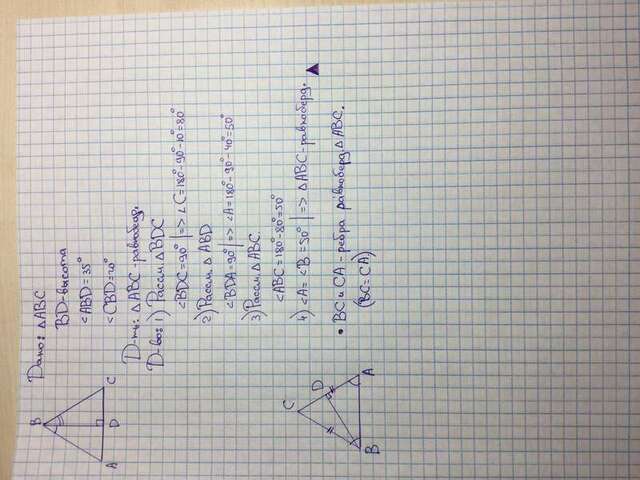 B
A
D
C
Дано: △ABC
BD-высота
∠ABD=35°
∠CBD=20°
Д-ть: △ABC-равнобедр.
Д-во: 1) Рассм. △BDC
∠BDC=90° | => ∠C=180°-90°-10°=80°
2) Рассм. △ABD
∠BDA=90° | => ∠A=180°-90°-40°=50°
3) Рассм. △ABC.
∠ABC=180°-80°=50°
4) ∠A=∠B=50° | => △ABC-равноберд.
C
D
B
A
• BC и CA - ребра равноберд. △ABC.
(BC=CA)